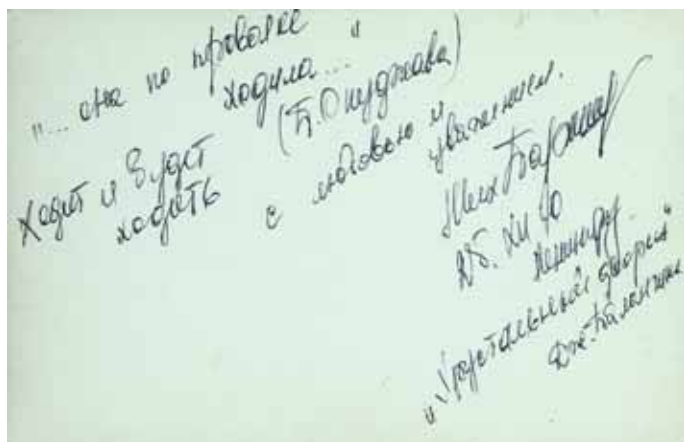 "... она по проволке
ходила..."
(Б. Окуджава)
Ходит и будет
ходить
с любовью и
уважением.
Мих Барыш
25. XII 90
Ленинград.
"Хрустальный дворец"
Дж. Баланчина